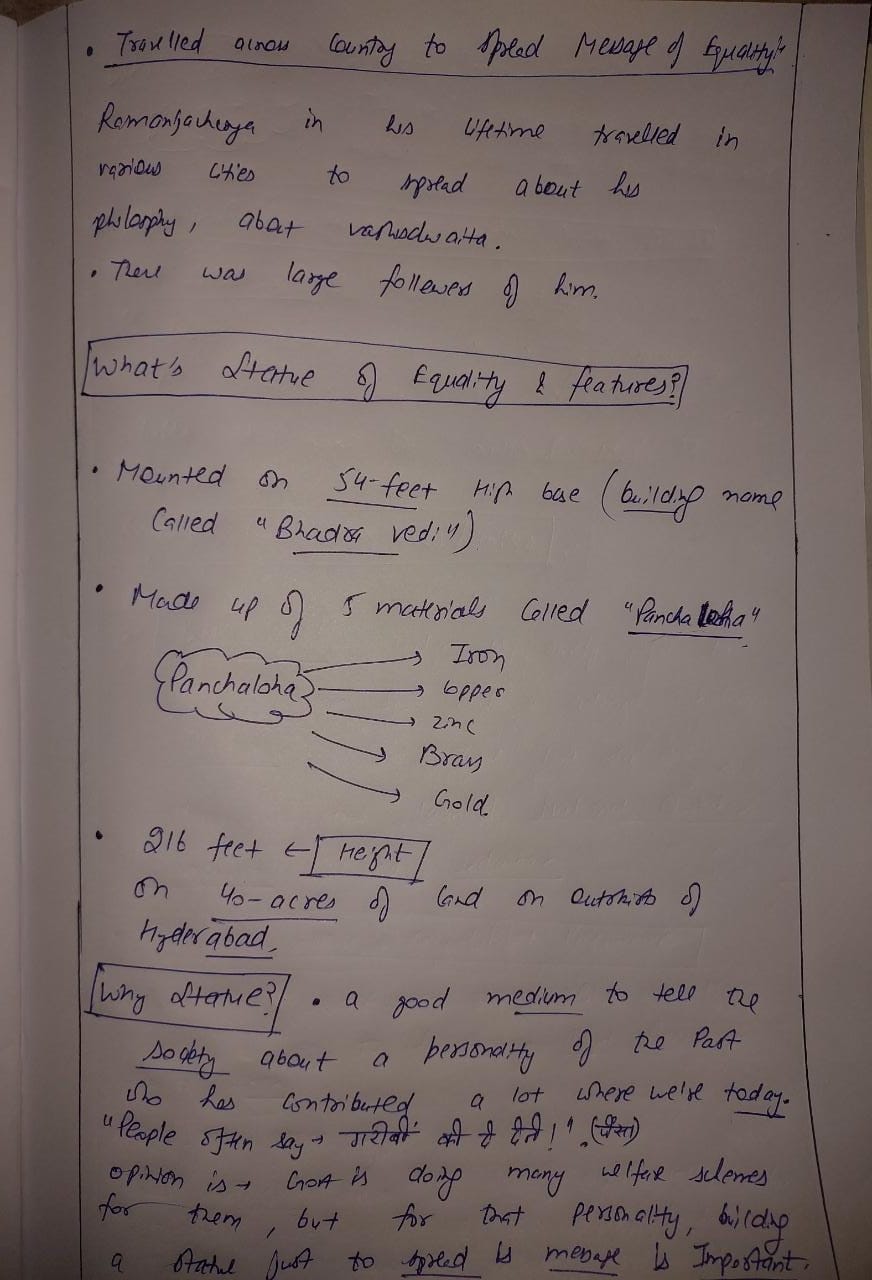 • Travelled across Country to Spread Message of Equality:-
Ramanjacharya in his lifetime travelled in
various cities to spread about his
philosphy, about vashsdwaita.
• There was large followers of him.
What's Statue of Equality & features?
• Mounted on 54-feet High base (building name
Called "Bhadra vedi")
• Made up of 5 materials Called "Panchaloha"
Panchaloha
→ Iron
→ Copper
→ Zinc
→ Brass
→ Gold
• 216 feet ← Height
on 40-acres of land on outskirts of
Hyderabad.
Why Statue? • a good medium to tell the
society about a personality of the Past
who has contributed a lot where we're today.
"People often say → गरीबों को दे देते!". (पैसा)
opinion is → Govt is doing many welfare schemes
for them, but for that personality, building
a statue just to spread is message is Important.